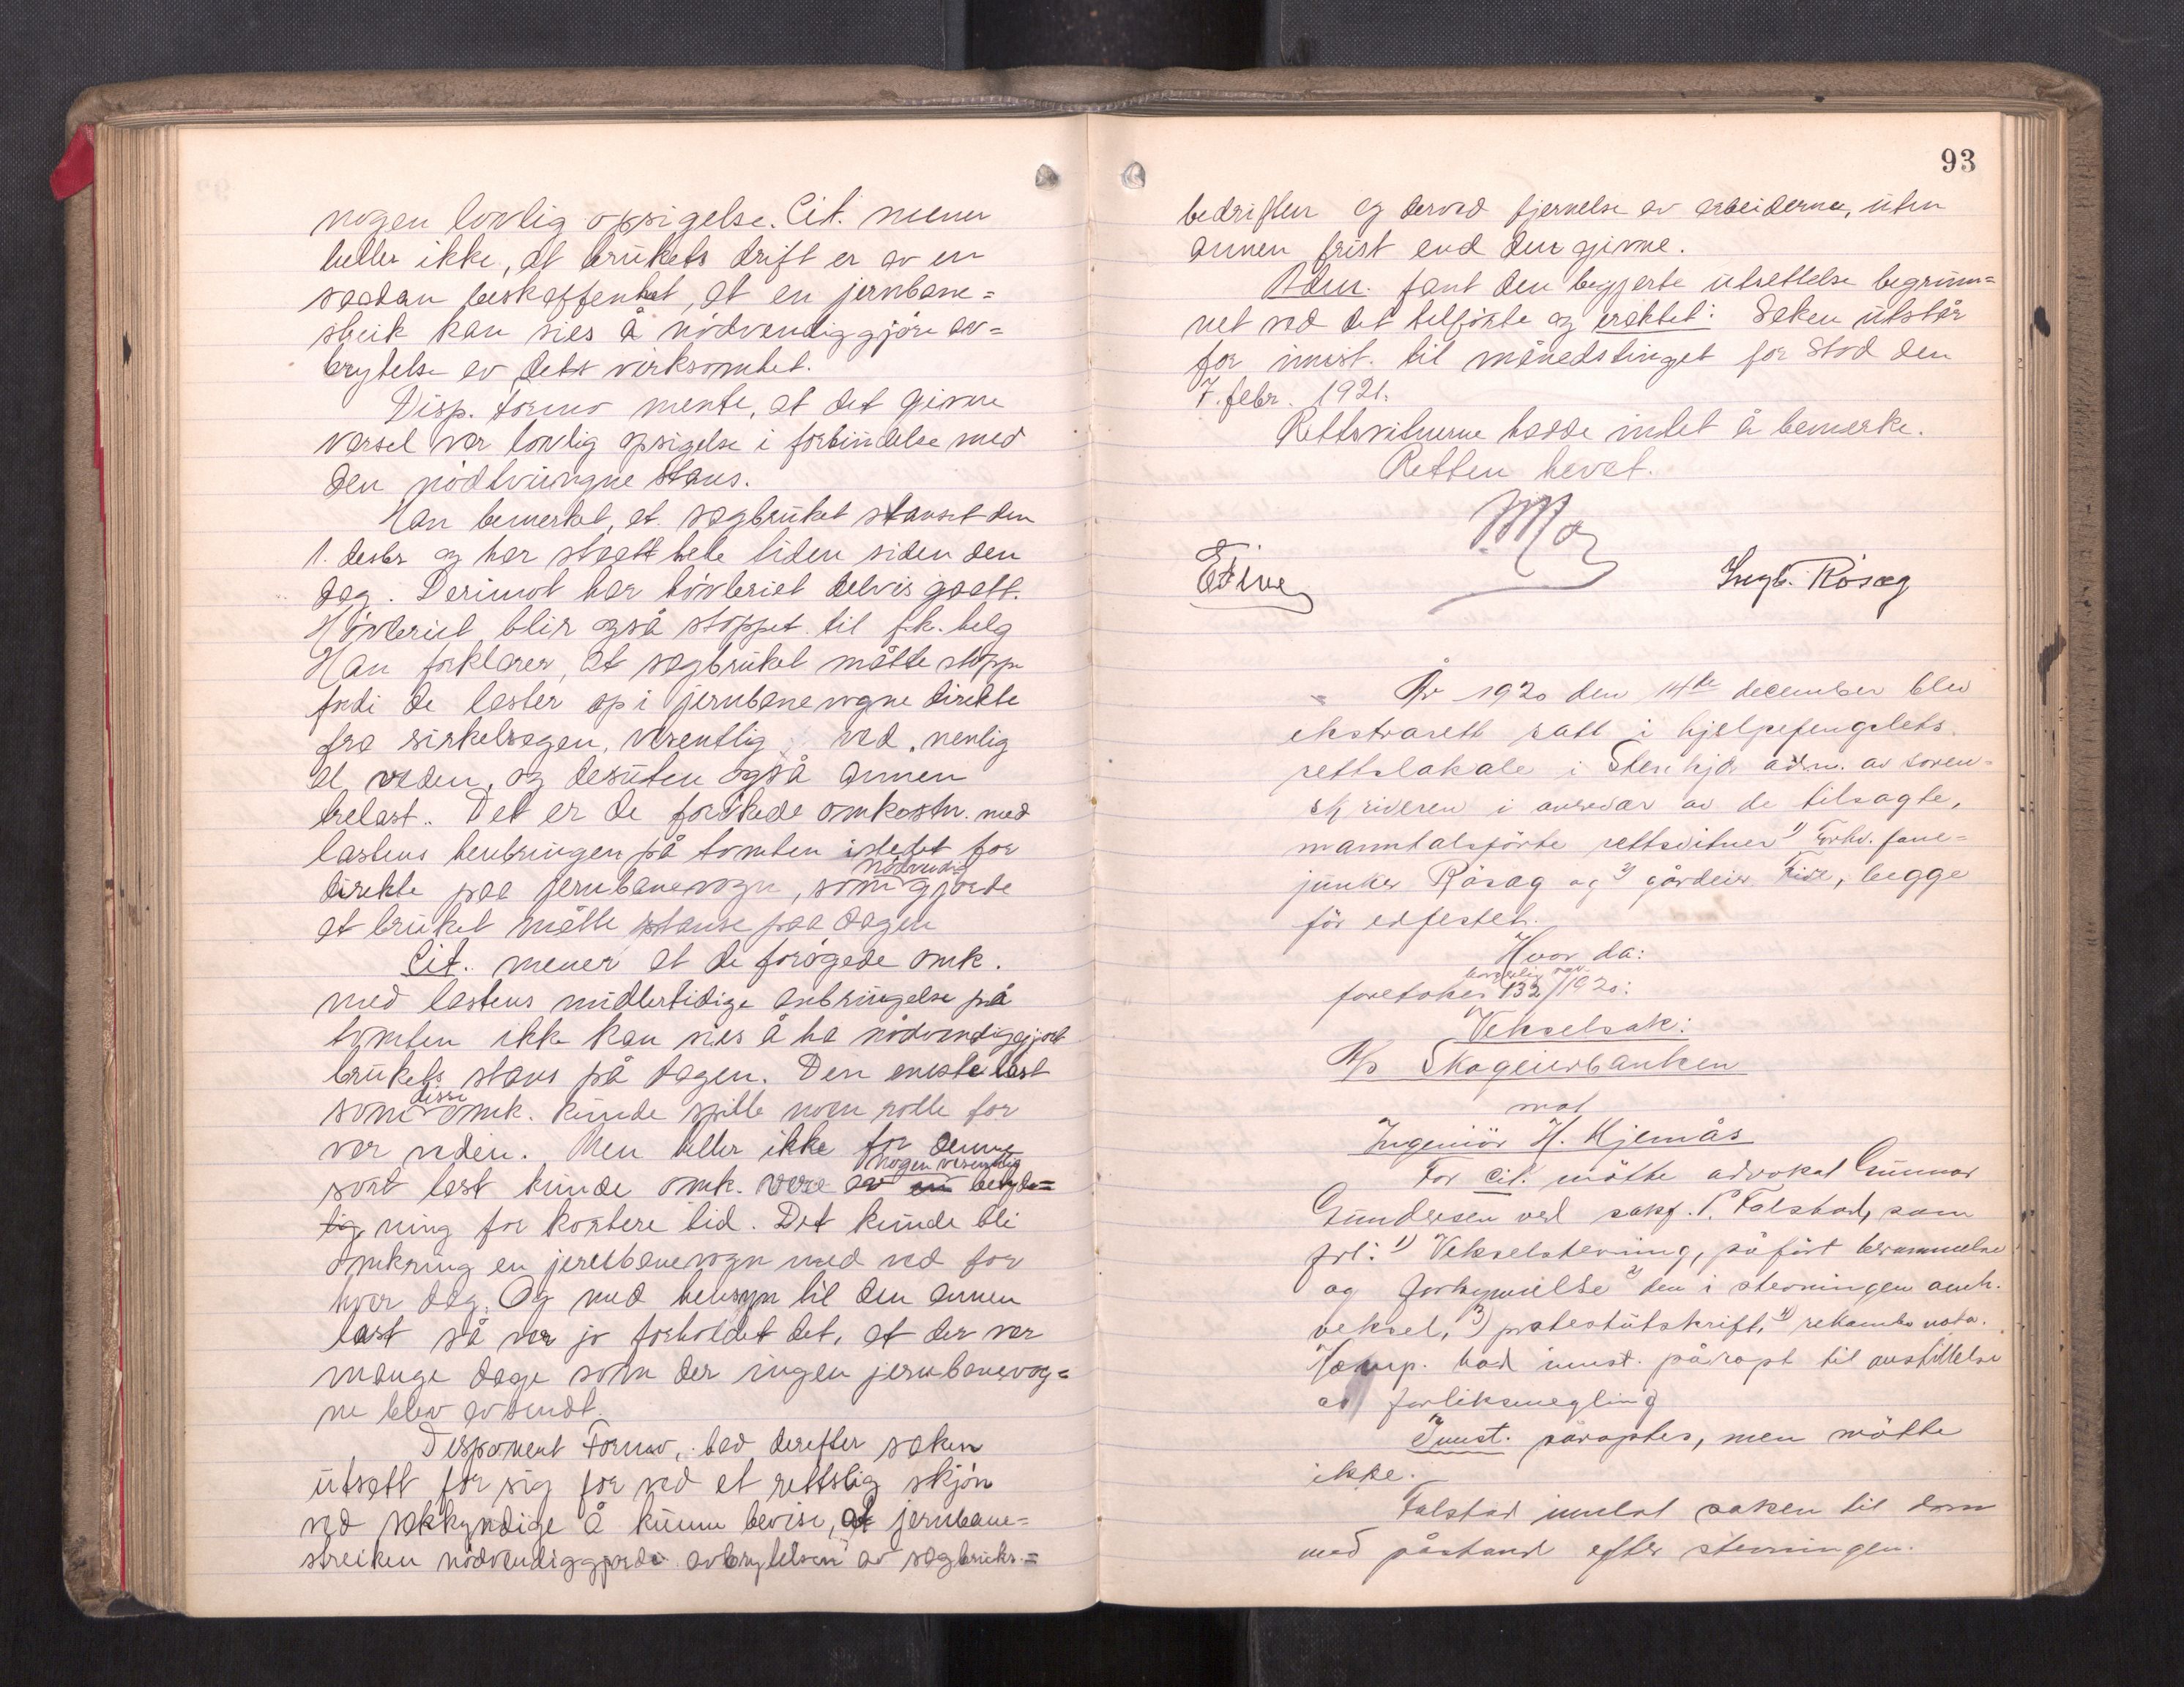 nogen lovlig opsigelse. Cit. mener
heller ikke, at brukets drift er av en
saadan beskaffenhet, at en jernbane=
streik kan sies å nödvendiggjöre av=
brytelse av dets virksomhet.
Disp. Formo mente, at det givne
varsel var lovlig opsigelse i forbindelse med
den nödtvungne stans.
Han bemerket, at sagbruket stanset den
1. desbr og har staatt hele tiden siden den
dag. Derimot har hövleriet delvis gaatt.
Hövleriet blir også stoppet til f.k. helg
Han forklarer, at sagbruket måtte stoppe
fordi de laster op i jernbanevogne direkte
fra sirkelsagen, vesentlig ved, nemlig
al veden, og desuten også annen
trelast. Det er de forökede omkostn. med
lastens henbringen på tomten istedet for
direkte paa jernbanevogn, som nödvendig gjorde
at bruket måtte stanse paa dagen
Cit. mener at de forögede omk.
med lastens midlertidige anbringelse på
tomten ikke kan sies å ha nödvendiggjort
brukets stans på dagen. Den eneste last
som disse omk. kunde spille noen rolle for
var veden. Men heller ikke for denne
sort last kunde omk. være av nogen vesentlig betyd=
ning for kortere tid. Det kunde bli
omkring en jernbanevogn med ved for
hver dag. Og med hensyn til den annen
last så var jo forholdet det, at der var
mange dage som der ingen jernbanevog=
ne blev avsendt.
Disponent Formo, bad derefter saken
utsatt for sig for ved et rettslig skjön
ved sakkyndige å kunne bevise, at jernbane=
streiken nödvendiggjorde avbrytelsen av sagbruks=
93
bedriften og derved fjernelse av arbeiderne, uten
annen frist end den givne.
Adm. fant den begjærte utsettelse begrun=
net ved det tilförte og eraktet: Saken utstår
for innst. til månedstinget for Stod den
7. febr. 1921.
Rettsvitnerne hadde intet å bemerke.
Retten hevet.
EFive
Ingb. Rösag
År 1920 den 14de december blev
ekstrarett satt i hjelpefengslets
rettslokale i Stenkjær adm. av soren=
skriveren i overvær av de tilsagte,
manntalsförte rettsvitner 1) forhv. fane=
junker Rösag og 2) gårdeier Five, begge
för edfestet.
Hvor da:
foretokes borgerlig sak 132/1920:
Vekselsak:
A/s Skogeierbanken
mot
Ingeniör H. Hjemås
For cit. mötte advokat Gunnar
Gundersen ved sakf. P. Falstad, som
frl: 1) Vekselstevning, påfört berammelse
og forkynnelse 2) den i stevningen omh.
veksel, 3) protestutskrift, 4) rekambonota.
Komp. bad innst. påropt til anstillelse
av forliksmegling
Innst. påroptes, men mötte
ikke.
Falstad innlot saken til dom
med påstand efter stevningen.